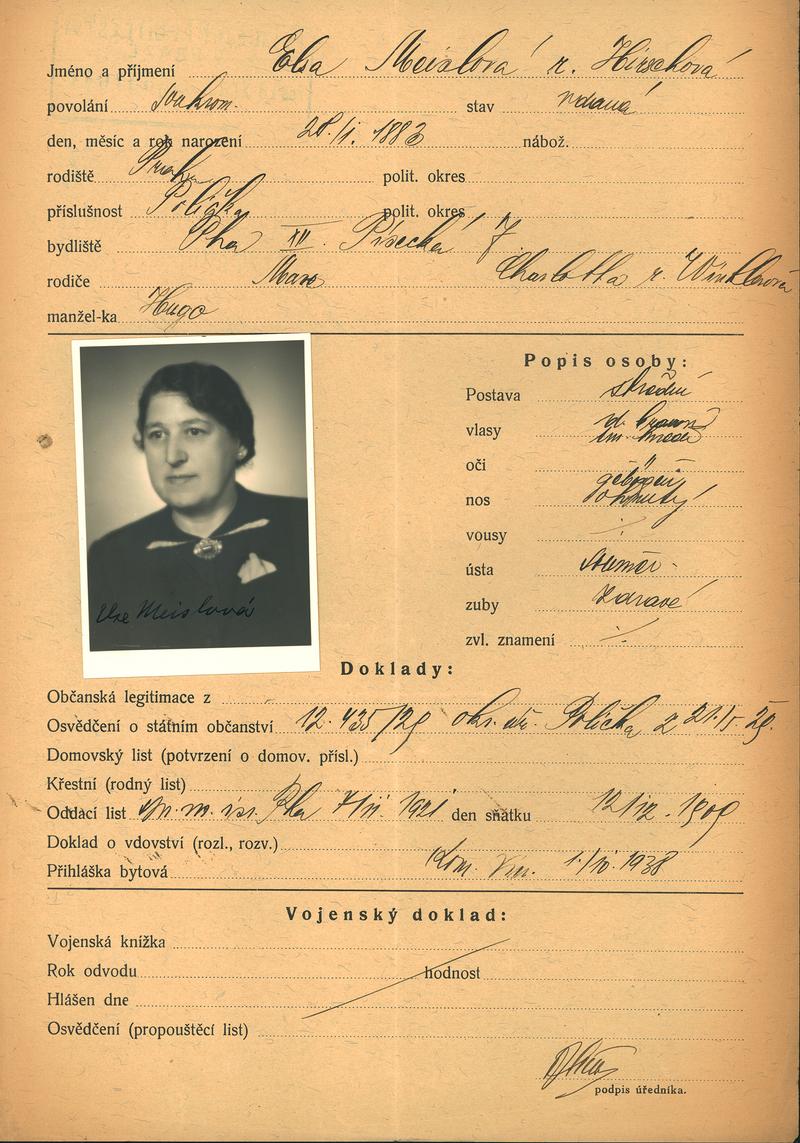 Jméno a příjmení Elsa Meislová r. Hirschová
povolání soukrom. stav vdaná
den, měsíc a rok narození 28./I. 1883 nábož.
rodiště Praha polit. okres
příslušnost Polička polit. okres
bydliště Pha XII. Písecká 7
rodiče Max Charlotta r. Winklerová
manžel-ka Hugo
Popis osoby:
Postava střední
vlasy braun
oči
nos gebogen ohnutý
vousy ·/·
ústa souměr.
zuby zdravé
zvl. znamení ·/·
Else Meislová
Doklady:
Občanská legitimace z
Osvědčení o státním občanství 12.435/29 okr. úř. Polička z 21./5. 29.
Domovský list (potvrzení o domov. přísl.)
Křestní (rodný list)
Oddací list m. isr. Pha 1921 den sňatku 12/12. 1909
Doklad o vdovství (rozl., rozv.)
Přihláška bytová Kom. Vin. 1938
Vojenský doklad:
Vojenská knížka
Rok odvodu hodnost
Hlášen dne
Osvědčení (propouštěcí list)
podpis úředníka.